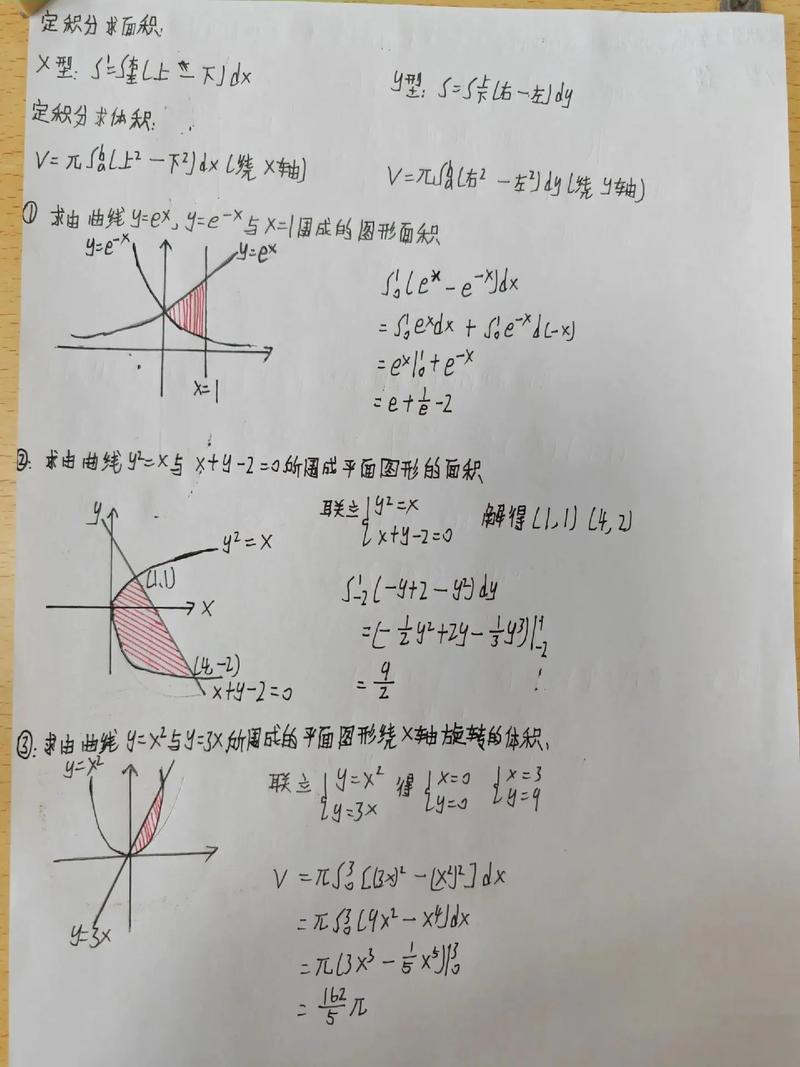 定积分求面积:
X型: S=∫左右(上-下)dx
y型: S=∫下上(右-左)dy
定积分求体积:
V=π∫ab(上²-下²)dx(绕X轴)
V=π∫ab(右²-左²)dy(绕y轴)
① 求由曲线y=eˣ, y=e⁻ˣ与x=1围成的图形面积
y=e⁻ˣ
y=eˣ
x=1
∫₀¹(eˣ-e⁻ˣ)dx
=∫₀¹eˣdx+∫₀¹e⁻ˣd(-x)
=eˣ|₀¹+e⁻ˣ
=e+1/e-2
②: 求由曲线y²=x与x+y-2=0所围成平面图形的面积
y
y²=x
(1,1)
x
(4,-2)
x+y-2=0
联立{y²=x
x+y-2=0
解得(1,1)(4,2)
∫₋₂¹(-y+2-y²)dy
=(-1/2y²+2y-1/3y³)|₋₂¹
=9/2
③: 求由曲线y=x²与y=3x所围成的平面图形绕X轴旋转的体积、
y=x²
y=3x
联立{y=x² 得{x=0 {x=3
y=3x y=0 y=9
V=π∫₀³[(3x)²-(x²)²]dx
=π∫₀³(9x²-x⁴)dx
=π(3x³-1/5x⁵)|₀³
=162/5π